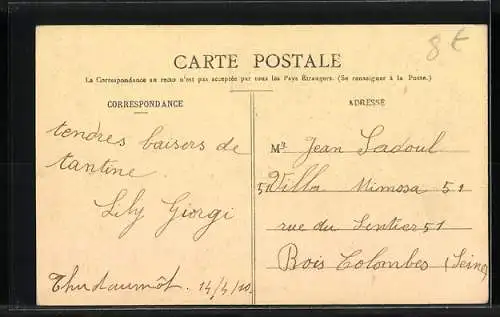 8 €
CARTE POSTALE
La Correspondance au recto n'est pas acceptée par tous les Pays Étrangers. (Se renseigner à la Poste.)
CORRESPONDANCE
tendres baisers de
tantine.
Lily Giorgi
14/4/10.
ADRESSE
Mr Jean Sadoul
51 Villa Mimosa 51
rue du Sentier 51
Bois Colombes (Seine)